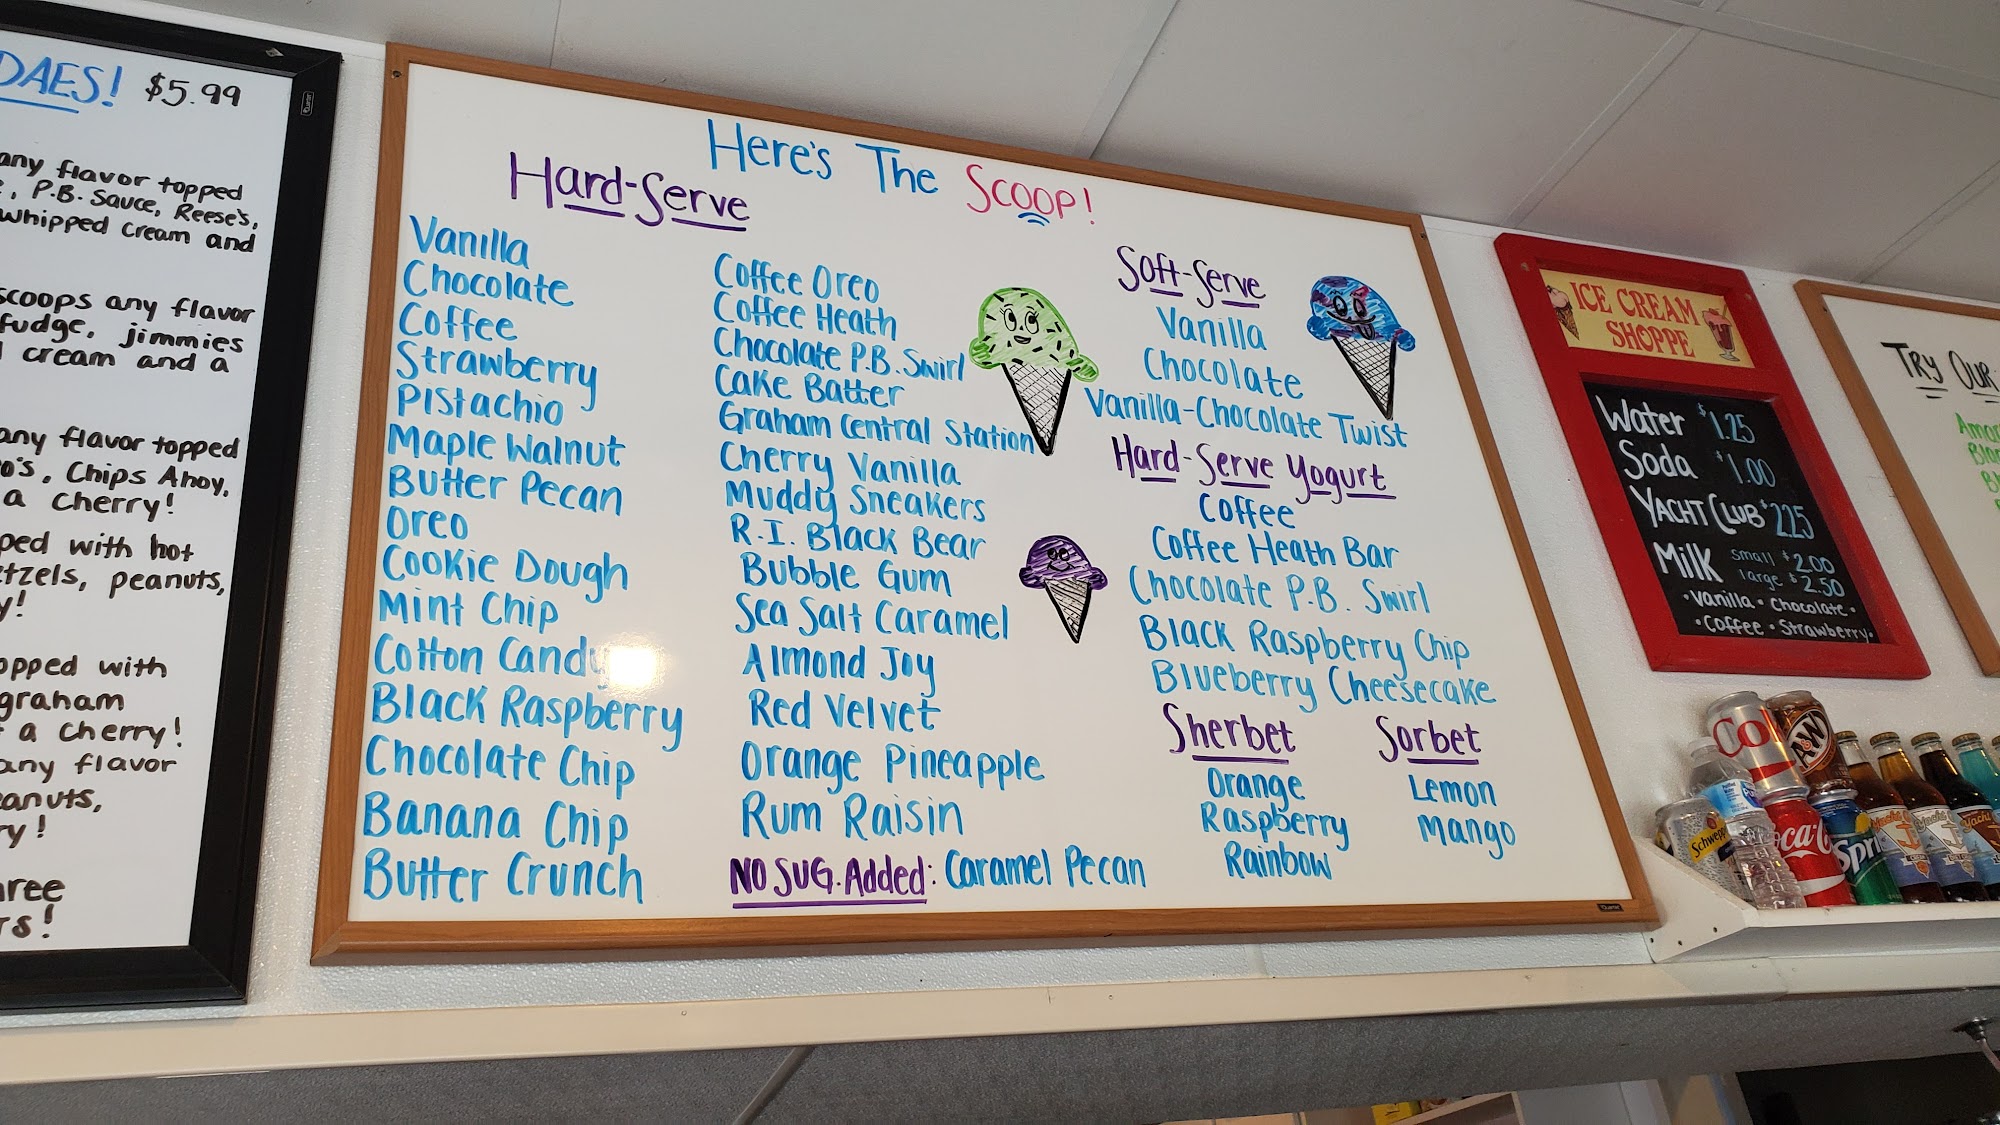 DAES! $5.99
any flavor topped
, P.B. Sauce, Reese's,
whipped cream and
scoops any flavor
fudge, jimmies
cream and a
any flavor topped
o's, Chips Ahoy,
a cherry!
ped with hot
etzels, peanuts,
y!
opped with
graham
a cherry!
any flavor
eanuts,
ry!
hree
rs!
Here's The Scoop!
Hard-Serve
Vanilla
Chocolate
Coffee
Strawberry
Pistachio
Maple Walnut
Butter Pecan
Oreo
Cookie Dough
Mint Chip
Cotton Candy
Black Raspberry
Chocolate Chip
Banana Chip
Butter Crunch
Coffee Oreo
Coffee Heath
Chocolate P.B. Swirl
Cake Batter
Graham Central Station
Cherry Vanilla
Muddy Sneakers
R.I. Black Bear
Bubble Gum
Sea Salt Caramel
Almond Joy
Red Velvet
Orange Pineapple
Rum Raisin
No Sug. Added: Caramel Pecan
Soft-Serve
Vanilla
Chocolate
Vanilla-Chocolate Twist
Hard-Serve Yogurt
Coffee
Coffee Heath Bar
Chocolate P.B. Swirl
Black Raspberry Chip
Blueberry Cheesecake
Sherbet
Orange
Raspberry
Rainbow
Sorbet
Lemon
Mango
ICE CREAM
SHOPPE
Water $1.25
Soda $1.00
Yacht Club $2.25
Milk small $2.00
large $2.50
• Vanilla • Chocolate •
• Coffee • Strawberry •
Try Our
Co
A&W
Schwepp
oca-C
Spri
Yacht
Yacht
Yacht